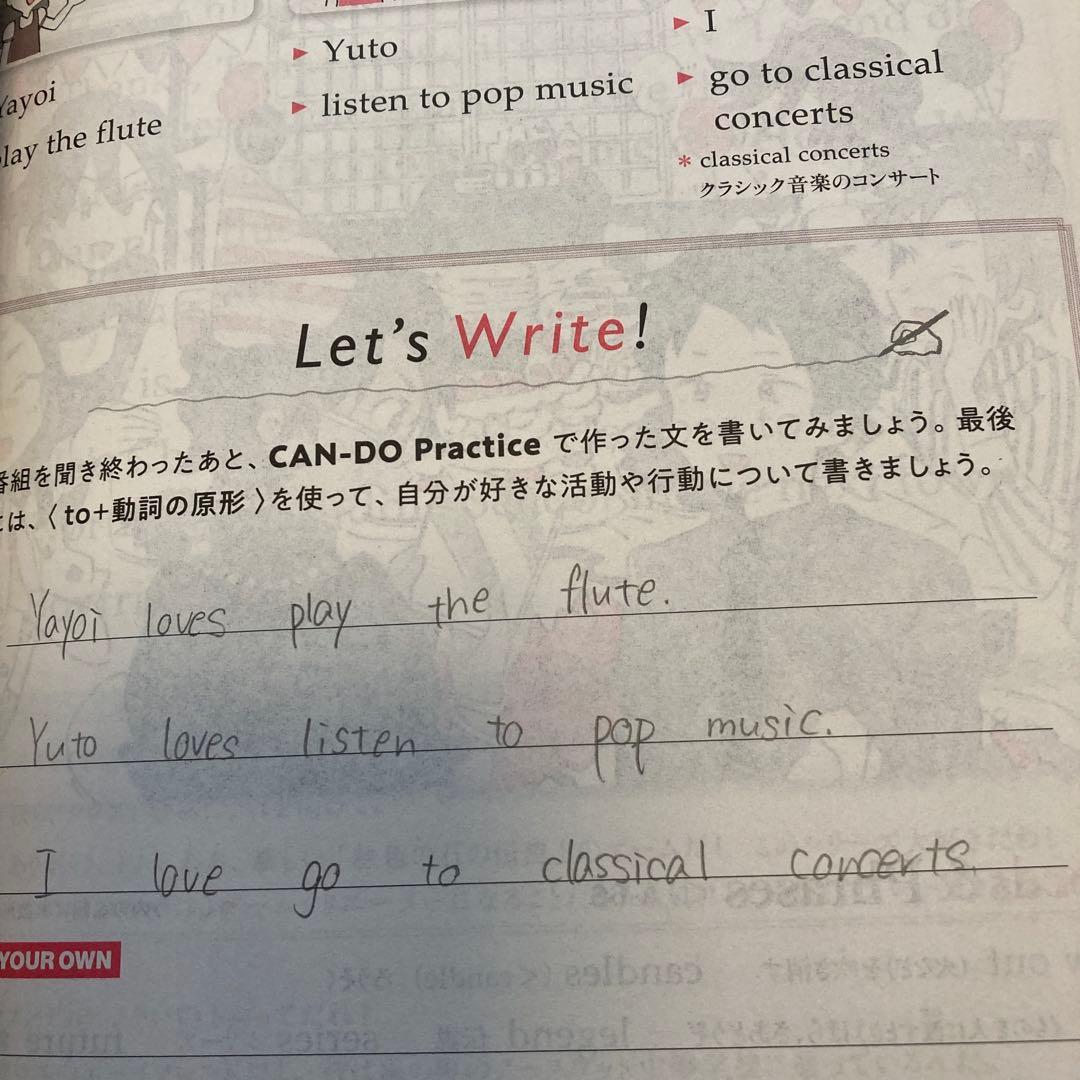 Yayoi
play the flute
Yuto
listen to pop music
I
go to classical
concerts
* classical concerts
クラシック音楽のコンサート
Let's Write!
番組を聞き終わったあと、CAN-DO Practice で作った文を書いてみましょう。最後
には、〈to+動詞の原形〉を使って、自分が好きな活動や行動について書きましょう。
Yayoi loves play the flute.
Yuto loves listen to pop music.
I love go to classical concerts.
YOUR OWN